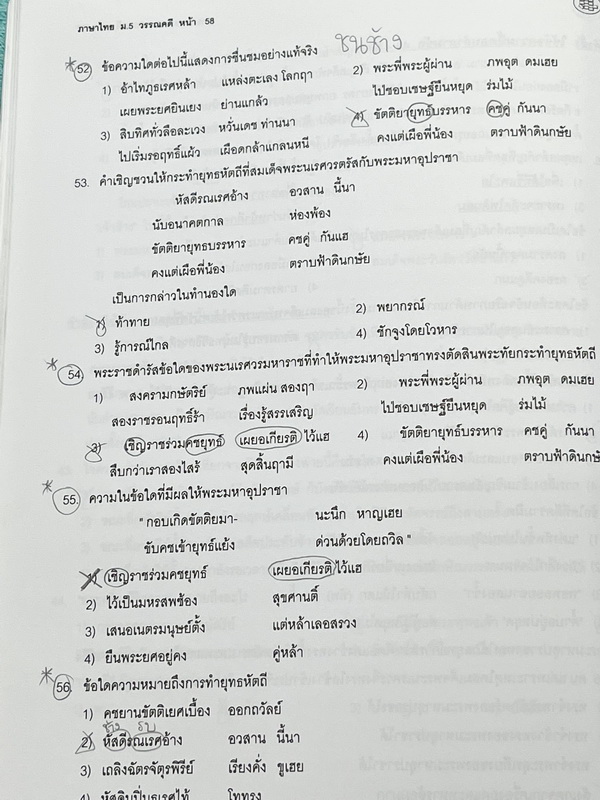 ภาษาไทย ม.5 วรรณคดี หน้า 58
ชนช้าง
52) ข้อความใดต่อไปนี้แสดงการชื่นชมอย่างแท้จริง
1) อ้าไทภูธเรศหล้า แหล่งตะเลง โลกฤา 2) พระพี่พระผู้ผ่าน ภพอุต ดมเฮย
เผยพระยศยินเยง ย่านแกล้ว ไป่ชอบเชษฐ์ยืนหยุด ร่มไม้
3) สิบทิศทั่วลือละเวง หวั่นเดช ท่านนา 4) ขัตติยายุทธ์บรรหาร คชคู่ กันนา
ไป่เริ่มรอฤทธิ์แผ้ว เผือดกล้าแกลนหนี คงแต่เผือพี่น้อง ตราบฟ้าดินกษัย
53. คำเชิญชวนให้กระทำยุทธหัตถีที่สมเด็จพระนเรศวรตรัสกับพระมหาอุปราชา
หัสดีรณเรศอ้าง อวสาน นี้นา
นับอนาคตกาล ห่องพ้อง
ขัตติยายุทธบรรหาร คชคู่ กันแฮ
คงแต่เผือพี่น้อง ตราบฟ้าดินกษัย
เป็นการกล่าวในทำนองใด
1) ท้าทาย 2) พยากรณ์
3) รู้การณ์ไกล 4) ชักจูงโดยโวหาร
54. พระราชดำรัสข้อใดของพระนเรศวรมหาราชที่ทำให้พระมหาอุปราชาทรงตัดสินพระทัยกระทำยุทธหัตถี
1) สงครามกษัตริย์ ภพแผ่น สองฤา 2) พระพี่พระผู้ผ่าน ภพอุต ดมเฮย
สองราชรอนฤทธิ์ร้า เรื่องรู้สรรเสริญ ไป่ชอบเชษฐ์ยืนหยุด ร่มไม้
3) เชิญราชร่วมคชยุทธ์ เผยอเกียรติ ไว้แฮ 4) ขัตติยายุทธ์บรรหาร คชคู่ กันนา
สืบกว่าเราสองไสร้ สุดสิ้นฤามี คงแต่เผือพี่น้อง ตราบฟ้าดินกษั
55. ความในข้อใดที่มีผลให้พระมหาอุปราชา
" กอบเกิดขัตติยมา- นะนึก หาญเฮย
ขับคชเข้ายุทธ์แย้ง ด่วนด้วยโดยถวิล "
1) เชิญราชร่วมคชยุทธ์ เผยอเกียรติ ไว้แฮ
2) ไว้เป็นมหรสพซ้อง สุขศานติ์
3) เสนอเนตรมนุษย์ตั้ง แต่หล้าเลอสรวง
4) ยืนพระยศอยู่คง คู่หล้า
56. ข้อใดความหมายถึงการทำยุทธหัตถี
1) คชยานขัตติเยศเบื้อง ออกถวัลย์
ช้าง รบ
2) หัสดีรณเรศอ้าง อวสาน นี้นา
3) เถลิงฉัตรจัตุรพิรีย์ เรียงคั่ง ขูเฮย